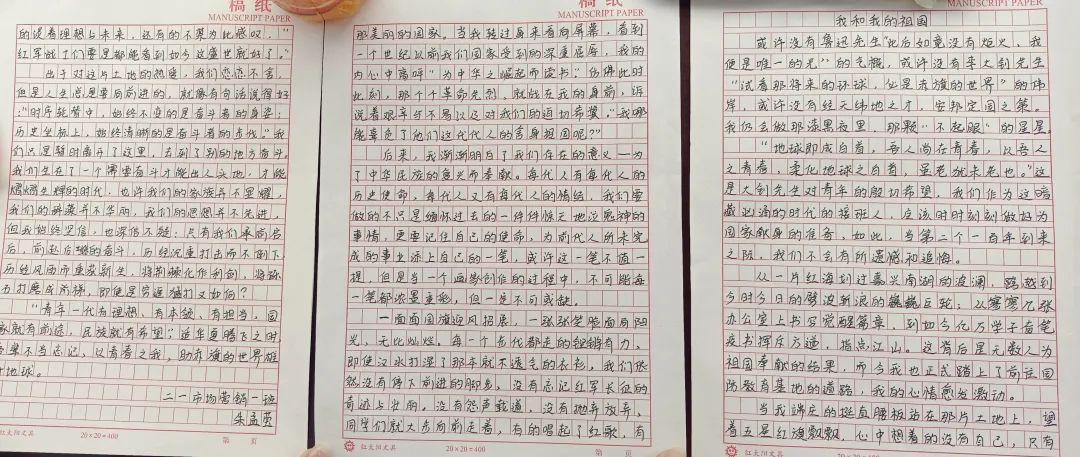 MANUSCRIPT PAPER
我和我的祖国
或许没有鲁迅先生“此后如竟没有炬火,我
便是唯一的光”的气概,或许没有李大钊先生
“试看那将来的环球,必是赤旗的世界”的伟
岸,或许没有经天纬地之才,安邦定国之策。
我仍会做那漆黑夜里,那颗“不起眼”的星星。
“地球即成白首,吾人尚在青春,以吾人
之青春,柔化地球之白首,虽老犹未老也。”这
是大钊先生对青年的殷切希望,我们作为这暗
藏汹涌的时代的接班人,应该时时刻刻做好为
国家献身的准备,如此,当第二个一百年到来
之际,我们不会有所遗憾和追悔。
从一片红海划过嘉兴南湖的波澜,跨越到
今时今日的劈波斩浪的巍巍巨轮;从寥寥几张
办公室上书写觉醒篇章,到如今亿万学子奋笔
疾书挥斥方遒,指点江山。这背后是无数人为
祖国奉献的结果,而今我也正式踏上了前往国
防教育基地的道路,我的心情愈发激动。
当我端庄的挺直腰板站在那片土地上,望
着五星红旗飘飘,心中想着的没有自己,只有
红太阳文具 20×20=400 第 页
稿纸
MANUSCRIPT PAPER
那美丽的国家。当我转过再来看向屏幕,看到
一个世纪以前我们国家受到的深重屈辱,我的
内心中高呼“为中华之崛起而读书”;仿佛此时
此刻,那个个革命先烈,就站在我的身前,诉
说着艰辛与不易以及对我们的迫切希冀。“我哪
能辜负了他们这代代人的舍身报国呢?”
后来,我渐渐明白了我们存在的意义—为
了中华民族的复兴而奉献。每代人有每代人的
历史使命,每代人又有每代人的情结,我们要
做的不只是缅怀过去的一件件惊天地泣鬼神的
事情,更要记住自己的使命,为前代人所未完
成的事业添上自己的一笔,或许这一笔不值一
提,但是当一个画家创作的过程中,不可能每
一笔都浓墨重彩,但一定不可或缺。
一面面国旗迎风招展,一张张笑脸面向阳
光,无比灿烂。每一个步伐都走的铿锵有力,
即使汗水打湿了那本就不透气的衣衫,我们依
然没有停下前进的脚步,没有忘记红军长征的
奇迹与壮丽。没有怨声载道,没有抛弃放弃,
同学们就大步向前走着,有的唱起了红歌,有
红太阳文具 20×20=400 第 页
稿纸
MANUSCRIPT PAPER
的说着理想与未来,还有的不要为此感叹,“
红军战士们要是都能看到如今这盛世就好了。”
出于对这片土地的热爱,我们恋恋不舍,
但是人生总是要向前进的,就像有句话说得好
:“时序轮替中,始终不变的是奋斗者的身姿;
历史坐标上,始终清晰的是奋斗者的步伐。”我
们只是暂时离开了这里,去到了别的地方奋斗。
我们生在了一个需要奋斗才能出人头地,才能
熠熠生辉的时代,也许我们的家族并不显耀,
我们的辞藻并不华丽,我们的思想并不先进,
但我始终坚信,也深信不疑:只有我们承前启
后,前赴后继的奋斗,历经沉重打击而不倒下,
历经风雨而重获新生,将荆棘化作利剑,将砾
石打磨成阶梯,即便是穷追猛打又如何?
“青年一代有理想、有本领、有担当,国
家就有前途,民族就有希望;适华夏腾飞之时
吾辈不当忘记,以青春之我,助赤旗的世界雄
于地球。
二一市场营销一班
朱孟莹
红太阳文具 20×20=400 第 页